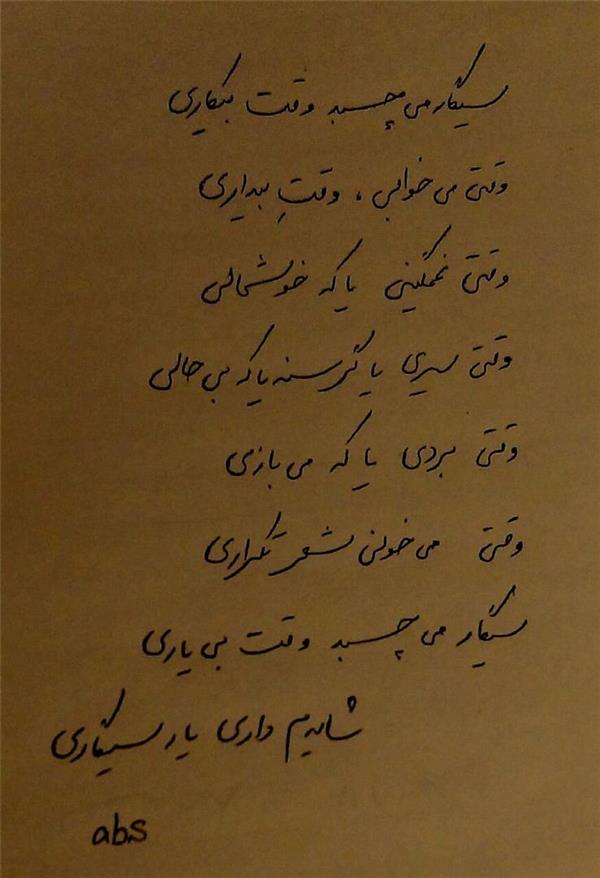 سیگار می چسبد وقت بیکاری
وقتی می خوابی ، وقتِ بیداری
وقتی غمگینی یا که خوشحالی
وقتی سیری یا گرسنه یا که بی حالی
وقتی بردی یا که می بازی
وقتی می خونی شعر تکراری
سیگار می چسبد وقت بی یاری
شایدم داری یار سیگاری
abs